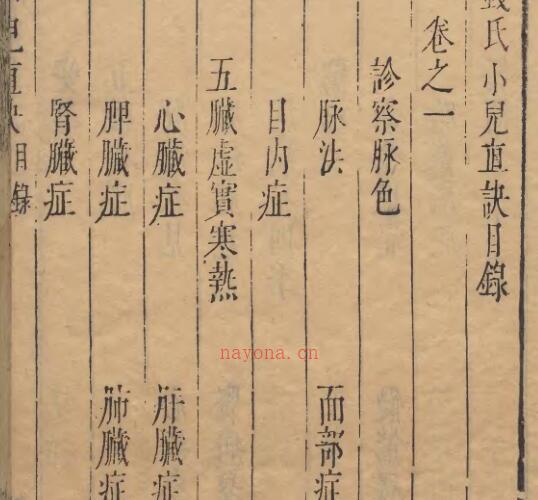 錢氏小兒直訣目錄
卷之一
診察脉色
脉法 面部症
目内症
五臟虛實寒熱
心臟症 肝臟症
脾臟症 肺臟症
腎臟症
兒直訣目錄
nayona.cn